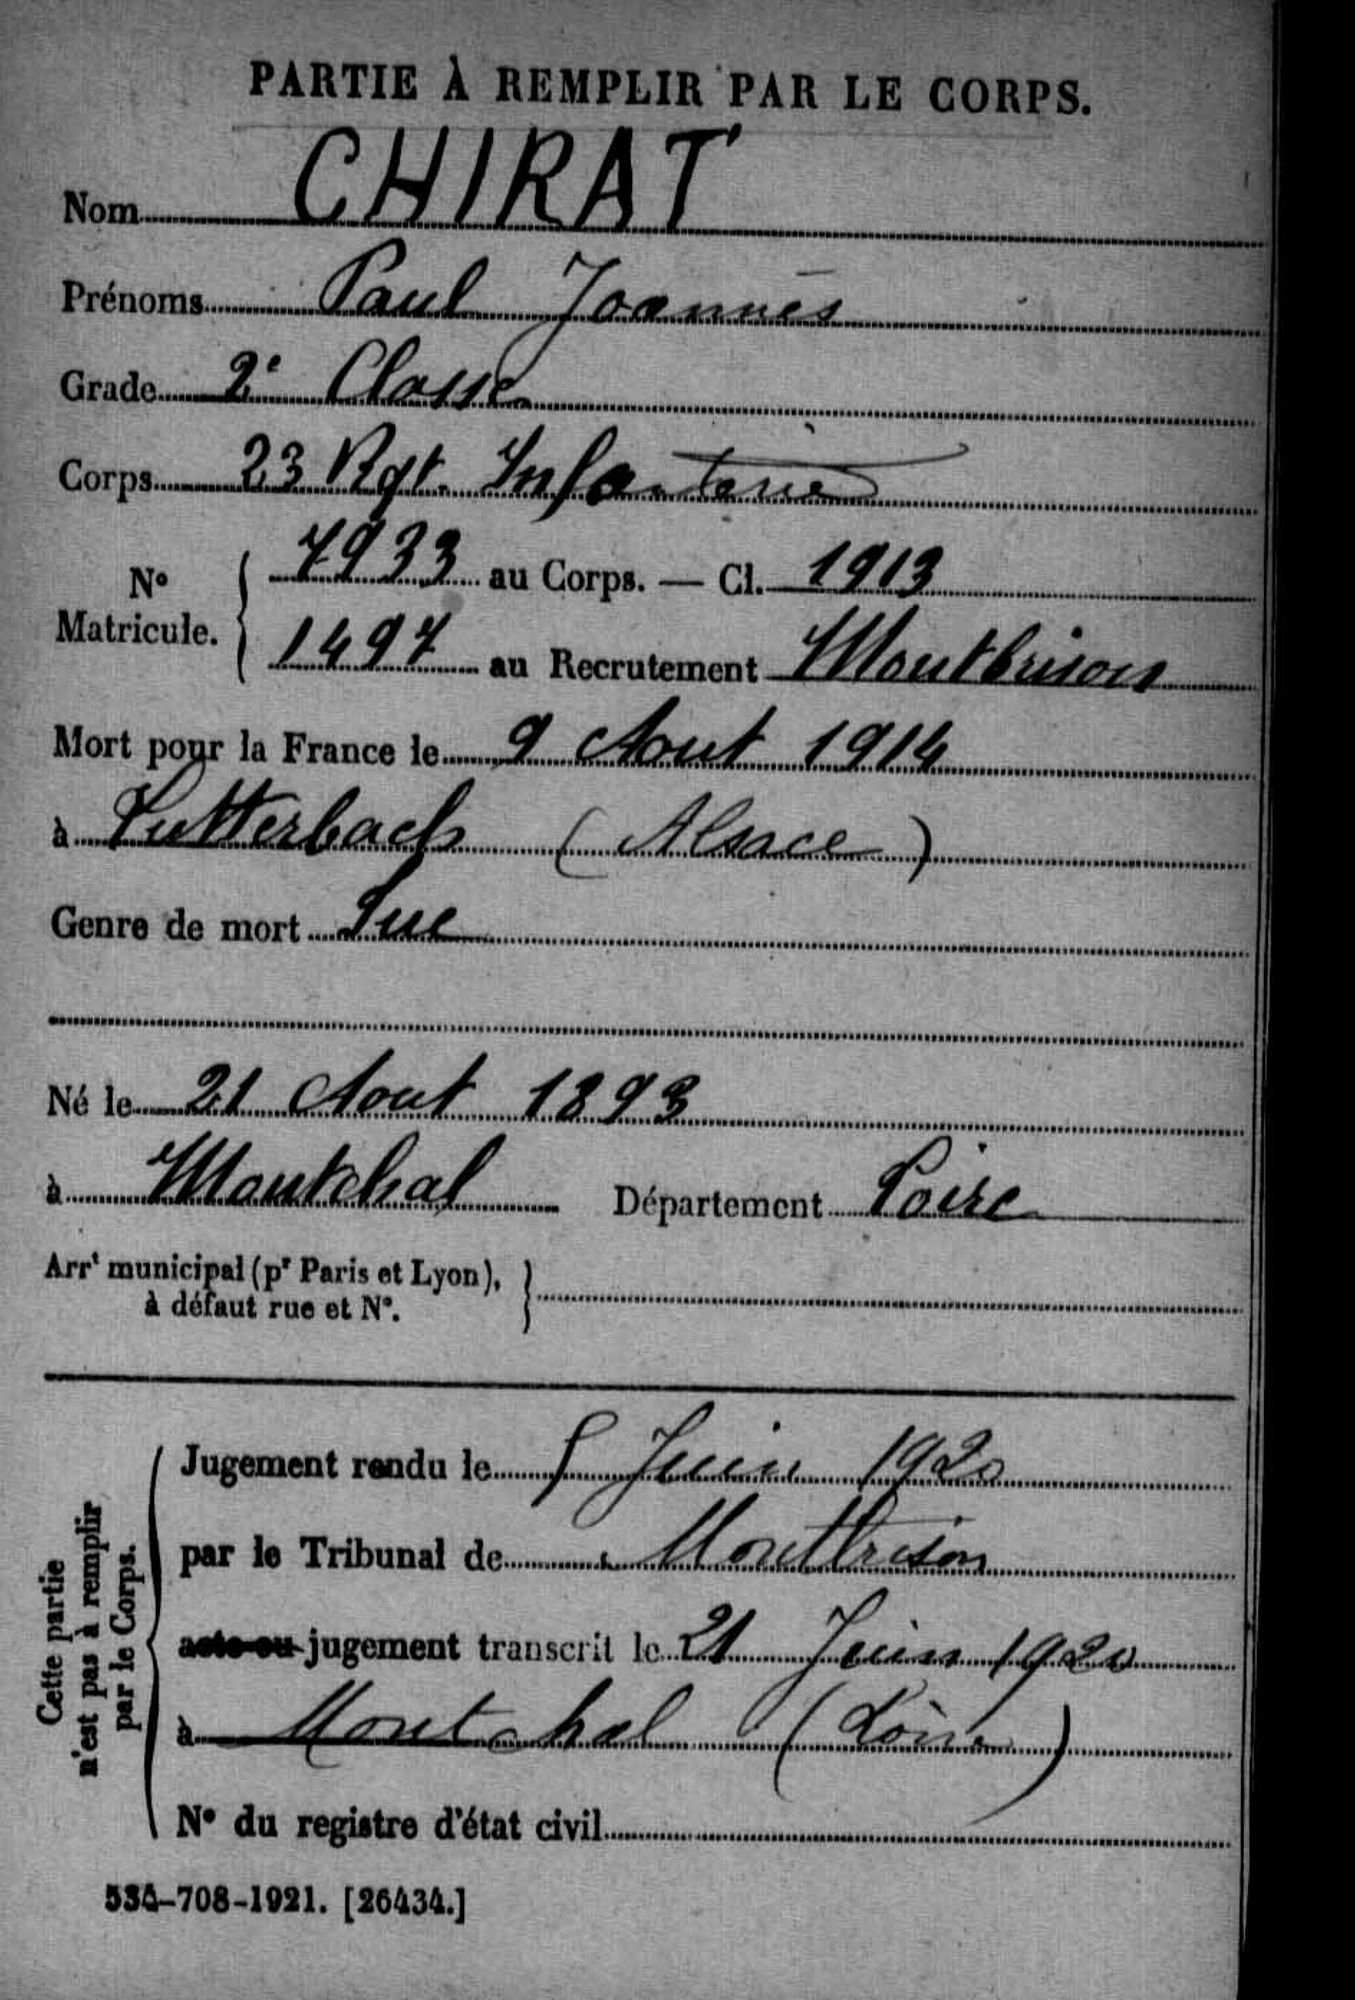 PARTIE À REMPLIR PAR LE CORPS.
Nom CHIRAT
Prénoms Paul Joannès
Grade 2e Classe
Corps 23 Rgt. Infanterie
N° Matricule. { 7933 au Corps. — Cl. 1913
1497 au Recrutement Montbrison
Mort pour la France le 9 Aout 1914
à Lutterbach (Alsace)
Genre de mort Tué
Né le 21 Aout 1893
à Montchal Département Loire
Arrt municipal (pr Paris et Lyon), }
à défaut rue et N°.
Cette partie
n'est pas à remplir
par le Corps.
Jugement rendu le 5 Juin 1920
par le Tribunal de Montbrison
acte ou jugement transcrit le 21 Juin 1920
à Montchal (Loire)
N° du registre d'état civil
534-708-1921. [26434.]